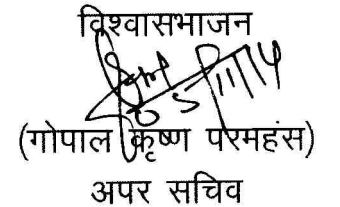 विश्वासभाजन
05/11/14
(गोपाल कृष्ण परमहंस)
अपर सचिव